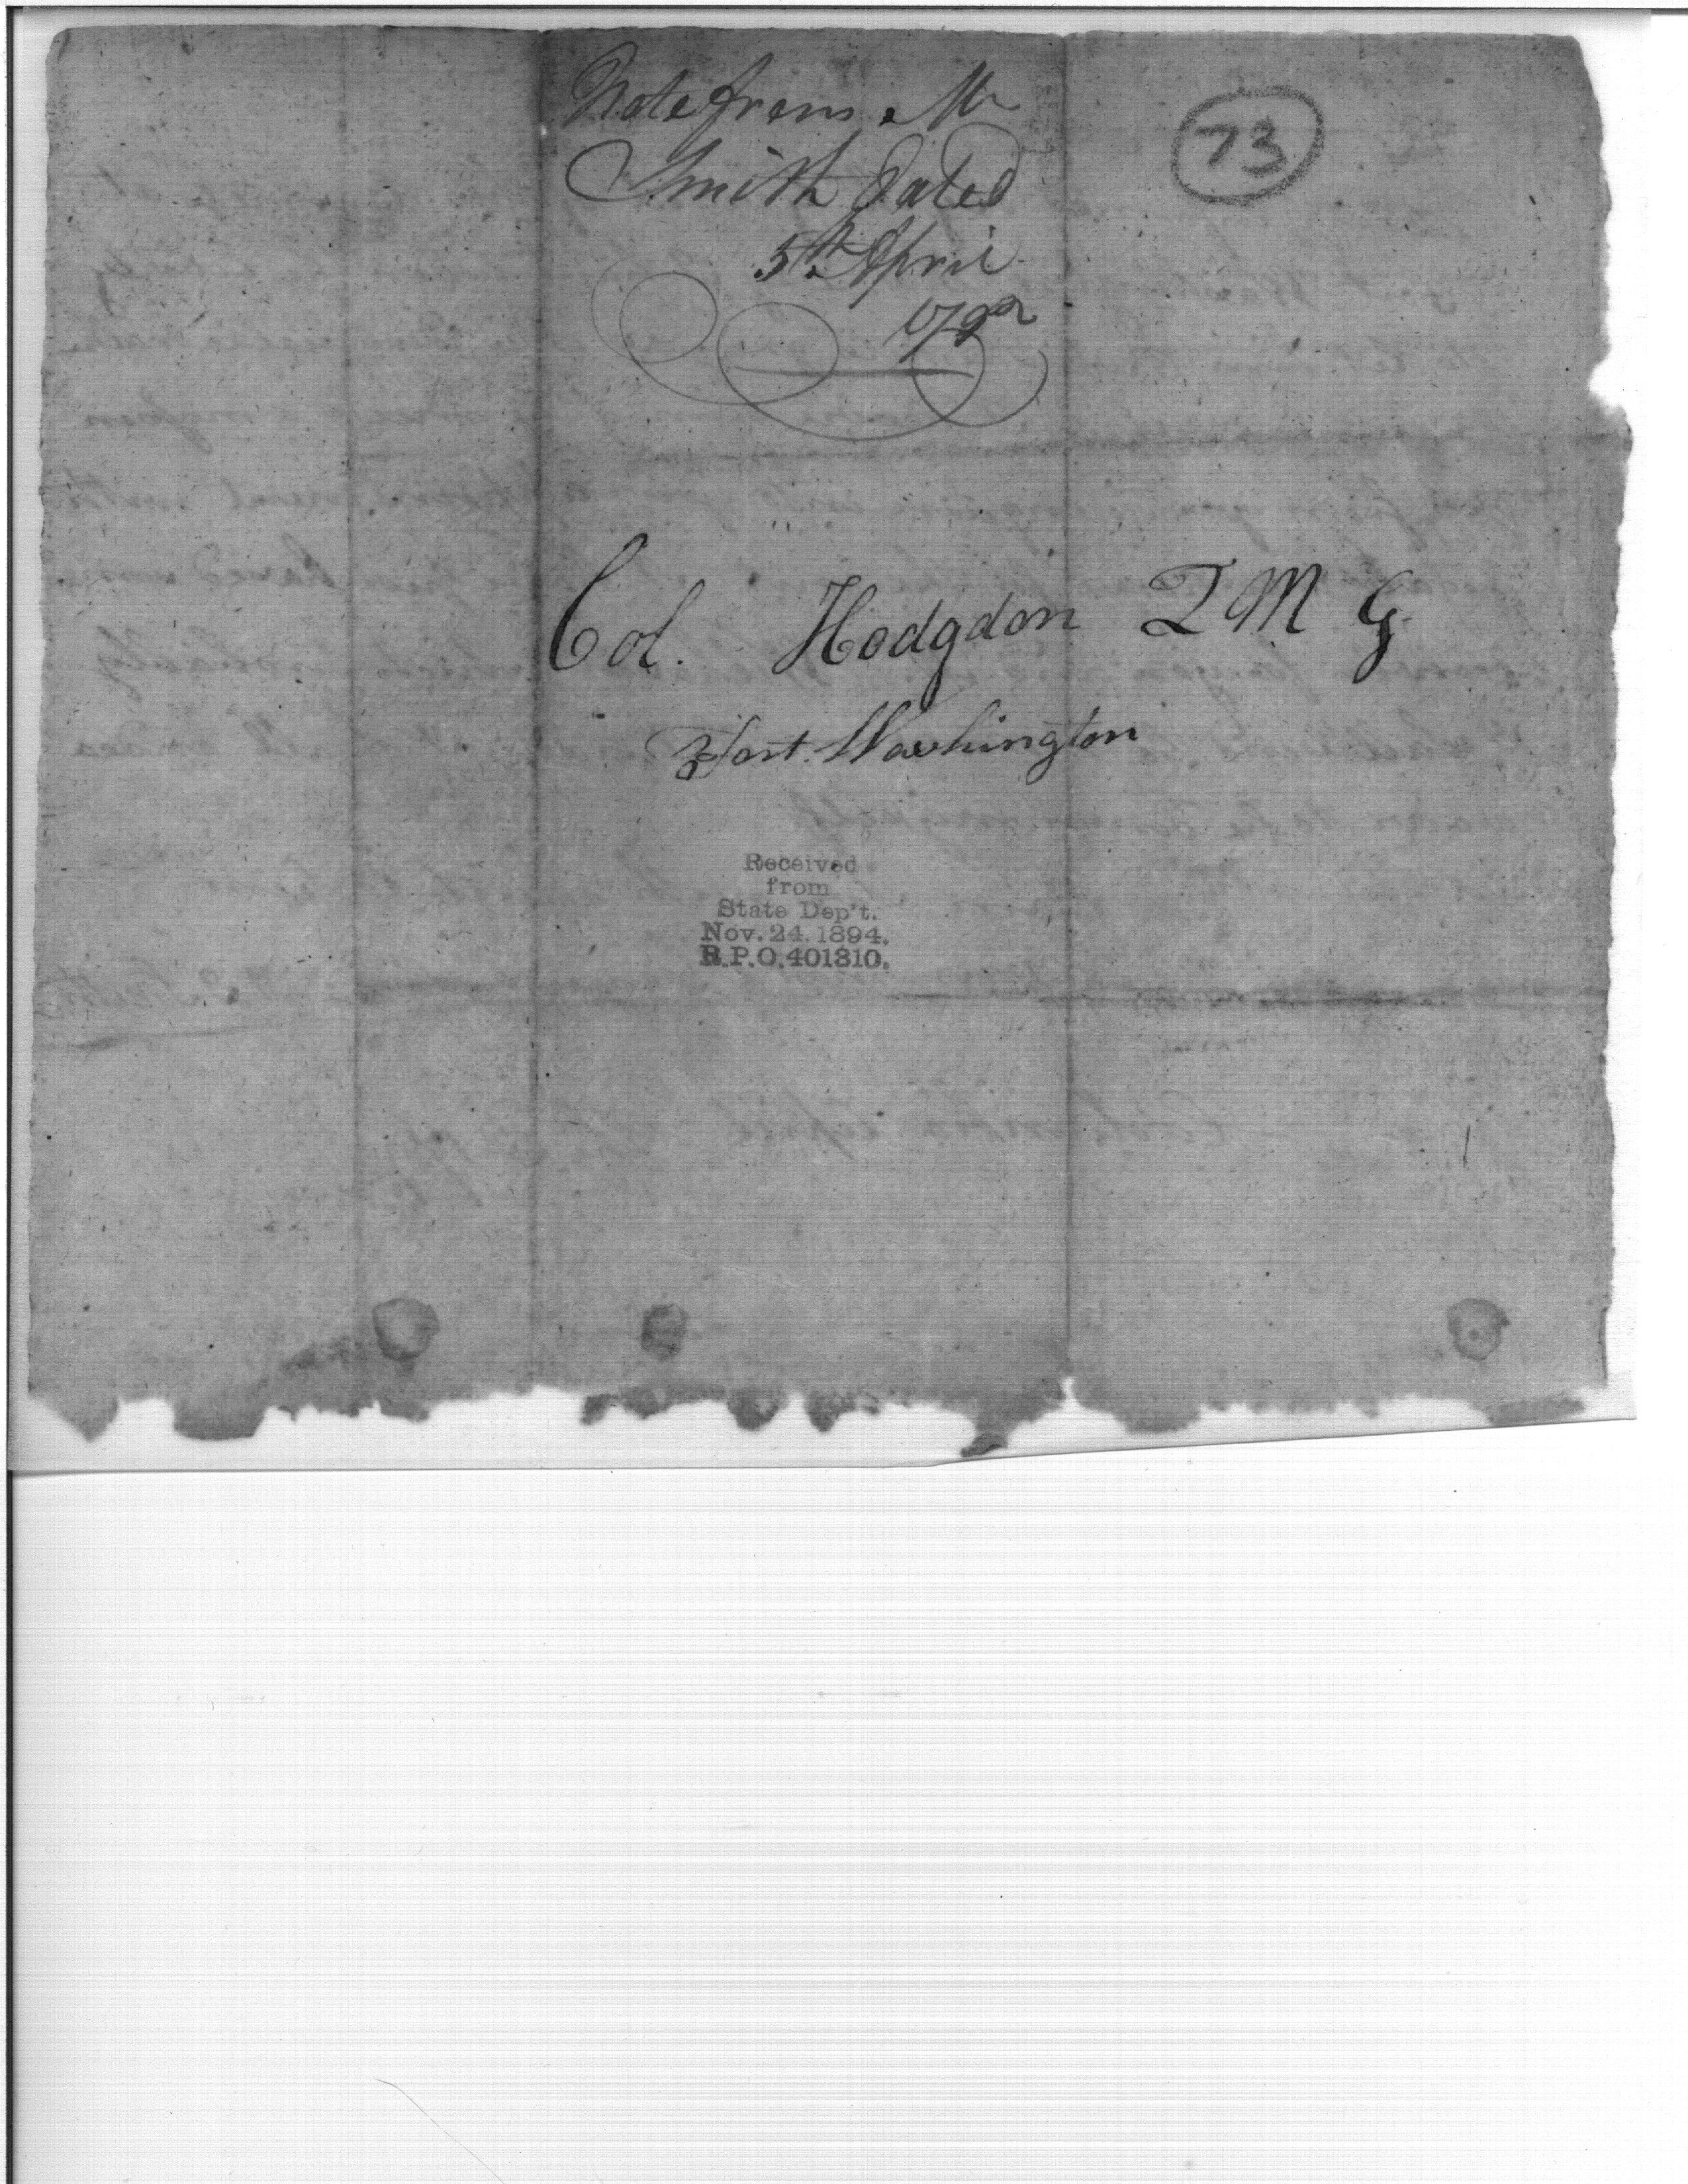 Note from Mr
Smith Dated
5th April
1792
73
Col. Hodgdon Q M G
Fort Washington
Received
from
State Dep't.
Nov. 24, 1894.
R.P.O. 401310.